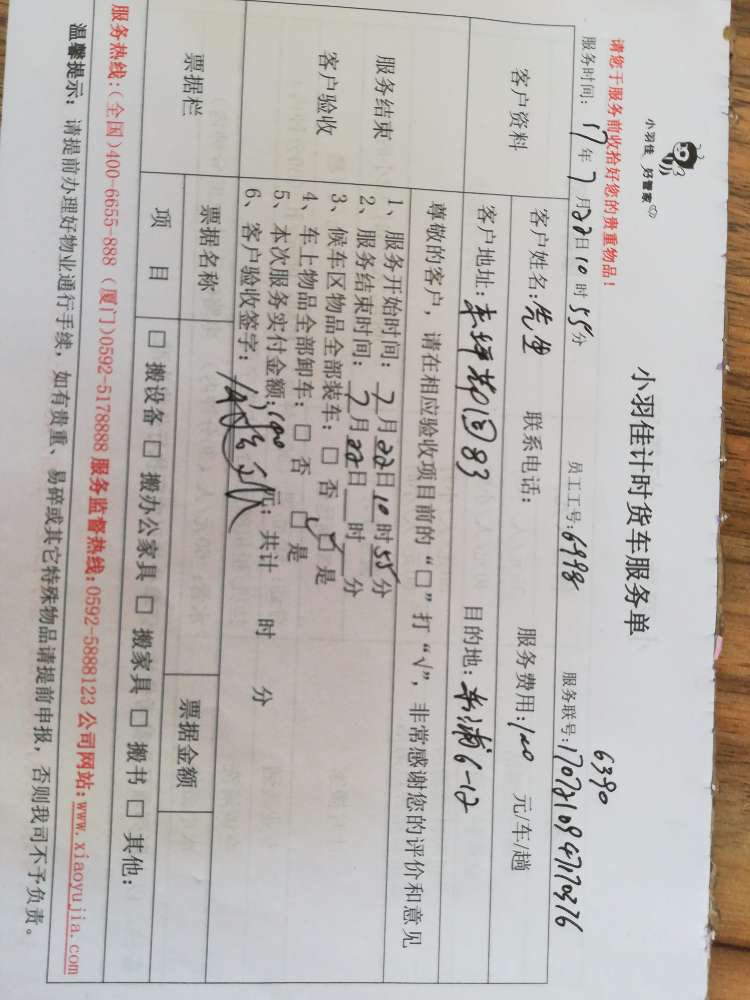 小羽佳 好管家
小羽佳计时货车服务单
6390
请您于服务前收拾好您的贵重物品!
服务时间: 17年7月22日10时55分 员工工号:6998 服务联号:1707210947170376
客户资料
客户姓名:先生 联系电话: 服务费用:100 元/车/趟
客户地址: 83 目的地: 6-12
服务结束
客户验收
尊敬的客户,请在相应验收项目前的“□”打“√”,非常感谢您的评价和意见
1、服务开始时间:7月22日10时55分
2、服务结束时间:7月22日__时__分
3、候车区物品全部装车:□ 否 ☑ 是
4、车上物品全部卸车:□ 否 □ 是
5、本次服务实付金额:100 元;共计 时 分
6、客户验收签字:
票据栏
票据名称 票据金额
项 目 □ 搬设备 □ 搬办公家具 □ 搬家具 □ 搬书 □ 其他:
服务热线:(全国)400-6655-888 (厦门)0592-5178888 服务监督热线:0592-5888123 公司网站:www.xiaoyujia.com
温馨提示:请提前办理好物业通行手续,如有贵重、易碎或其它特殊物品请提前申报,否则我司不予负责。